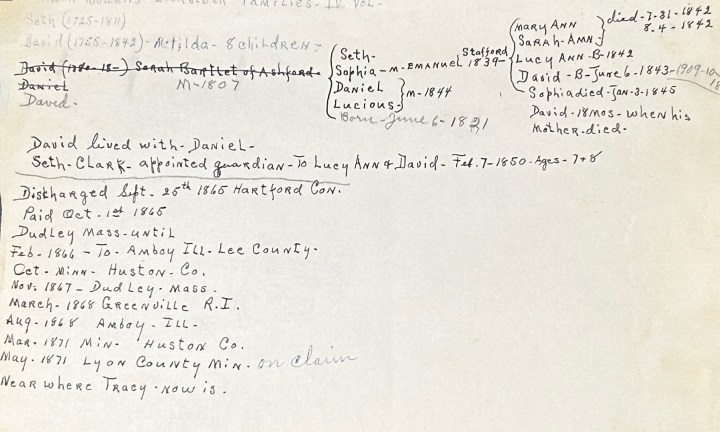 Families - IV Vol.
Seth (1725-1811)
David (1755-1842) - Matilda - 8 children -
David (1780-18-) Sarah Bartlet of Ashford
M-1807
Daniel
David -
Seth -
Sophia - m - Emanuel Stafford 1839 -
Daniel } m-1844
Lucious -
Born - June 6 - 1821
Mary Ann } died - 7-31-1842
Sarah - Ann } 8-4-1842
Lucy Ann - B - 1842
David - B - June 6 - 1843 - 1909 -
Sophia died - Jan - 3 - 1845
David - 18 mos - when his
Mother - died -
David lived with - Daniel -
Seth - Clark - appointed guardian - To Lucy Ann & David - Feb. 7 - 1850 - Ages - 7 + 8
Discharged Sept. 25th 1865 Hartford Con.
Paid Oct - 1st 1865
Dudley Mass - until
Feb - 1866 - To - Amboy Ill - Lee County -
Oct - Minn - Huston - Co.
Nov: 1867 - Dudley - Mass -
March - 1868 Greenville R.I.
Aug - 1868 Amboy - Ill -
Mar - 1871 Min - Huston Co.
May - 1871 Lyon County Min - on claim
Near where Tracy - now is -